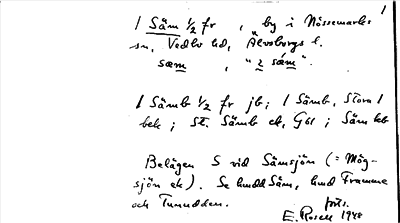 1
1 Säm 1/2 fr , by i Nössemarks
sn, Vedbo hd, Älvsborgs l.
sæm , "2 sám".
1 Sämb 1/2 fr jb; 1 Sämb, Stora 1
bek; St. Sämb ek, Gbl; Säm kb
Belägen S vid Sämsjön (= Mög-
sjön ek). Se hmdl Säm, hmd Framme
och Tunudden.
forts.
E. Rosell 1948